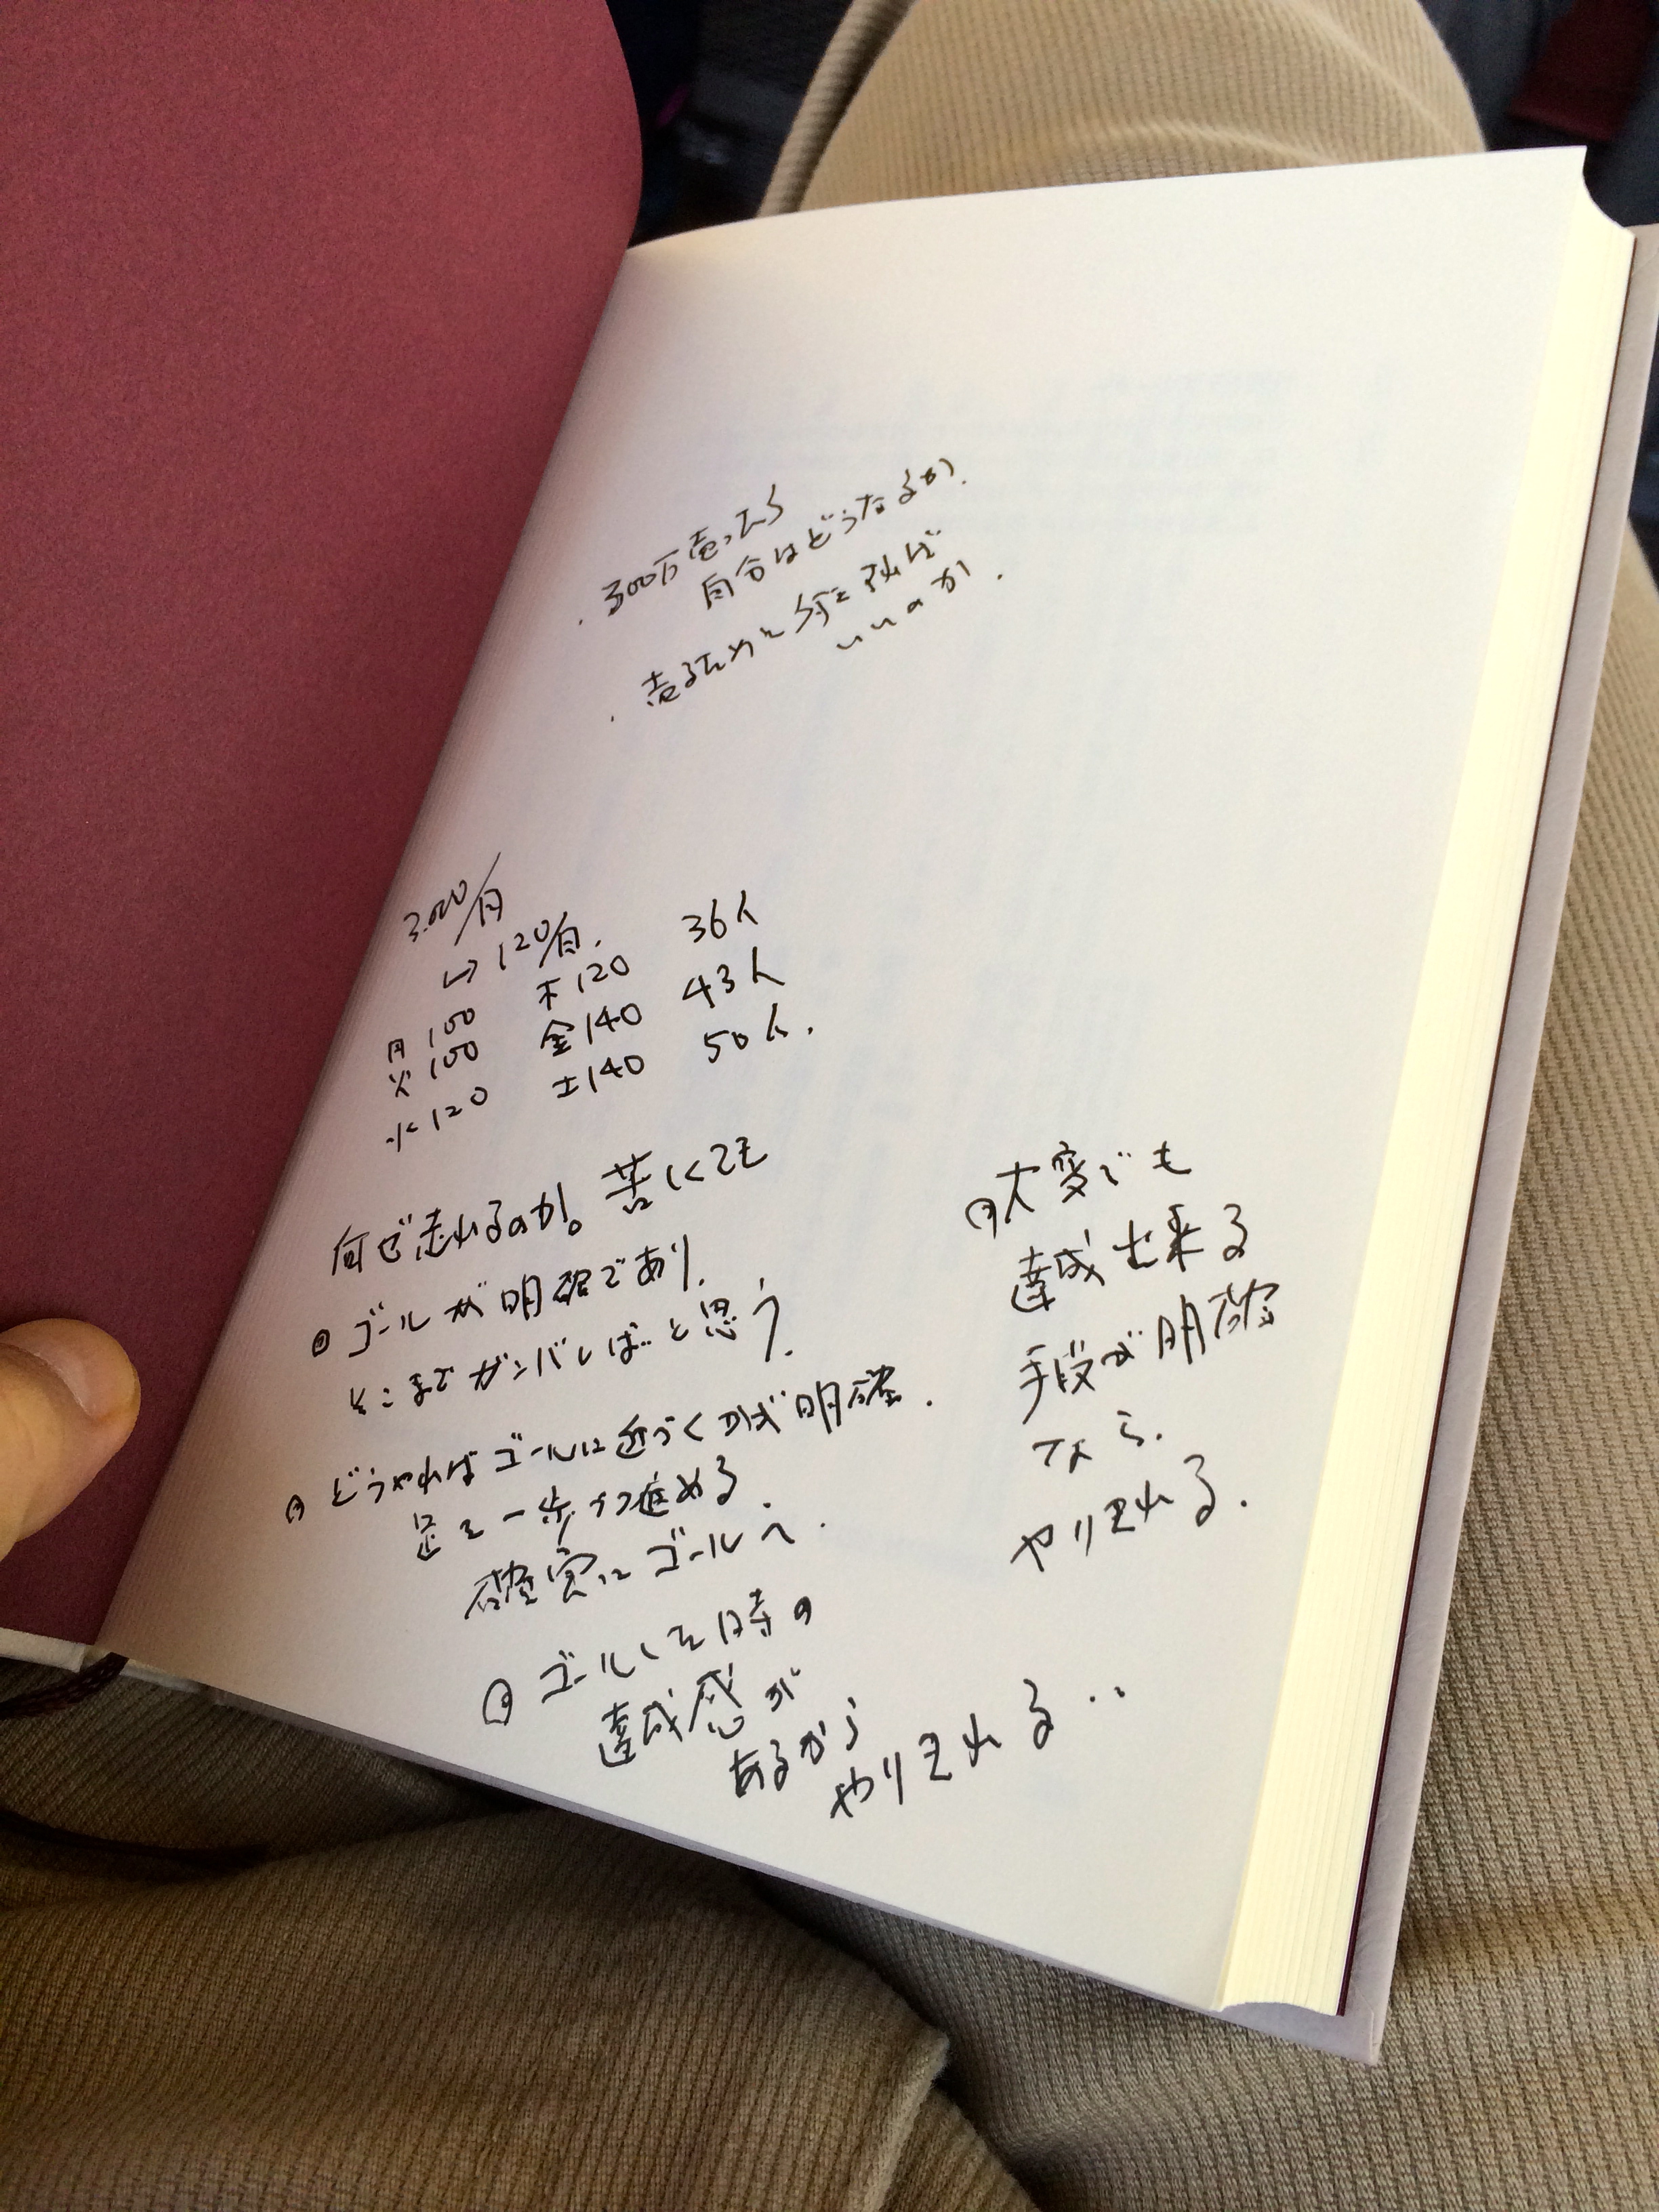 ・300万売ったら
自分はどうなるか.
・売るために何をすれば
いいのか.
3.000/月
↳120/日.
月100 木120 36人
火100 金140 43人
水120 土140 50人.
何で走れるのか。苦しくても
ゴールが明確であり.
そこまでガンバレば‥と思う.
どうやればゴールに近づくかが明確.
足を一歩づつ進める.
確実にゴールへ.
ゴールした時の
達成感が
あるから
やりきれる‥
大変でも
達成出来る
手段が明確
なら.
やりきれる.